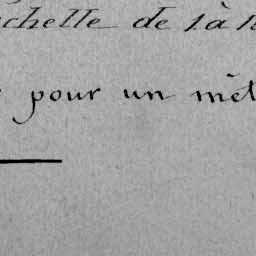 chelle de 1 à 1
pour un mèt